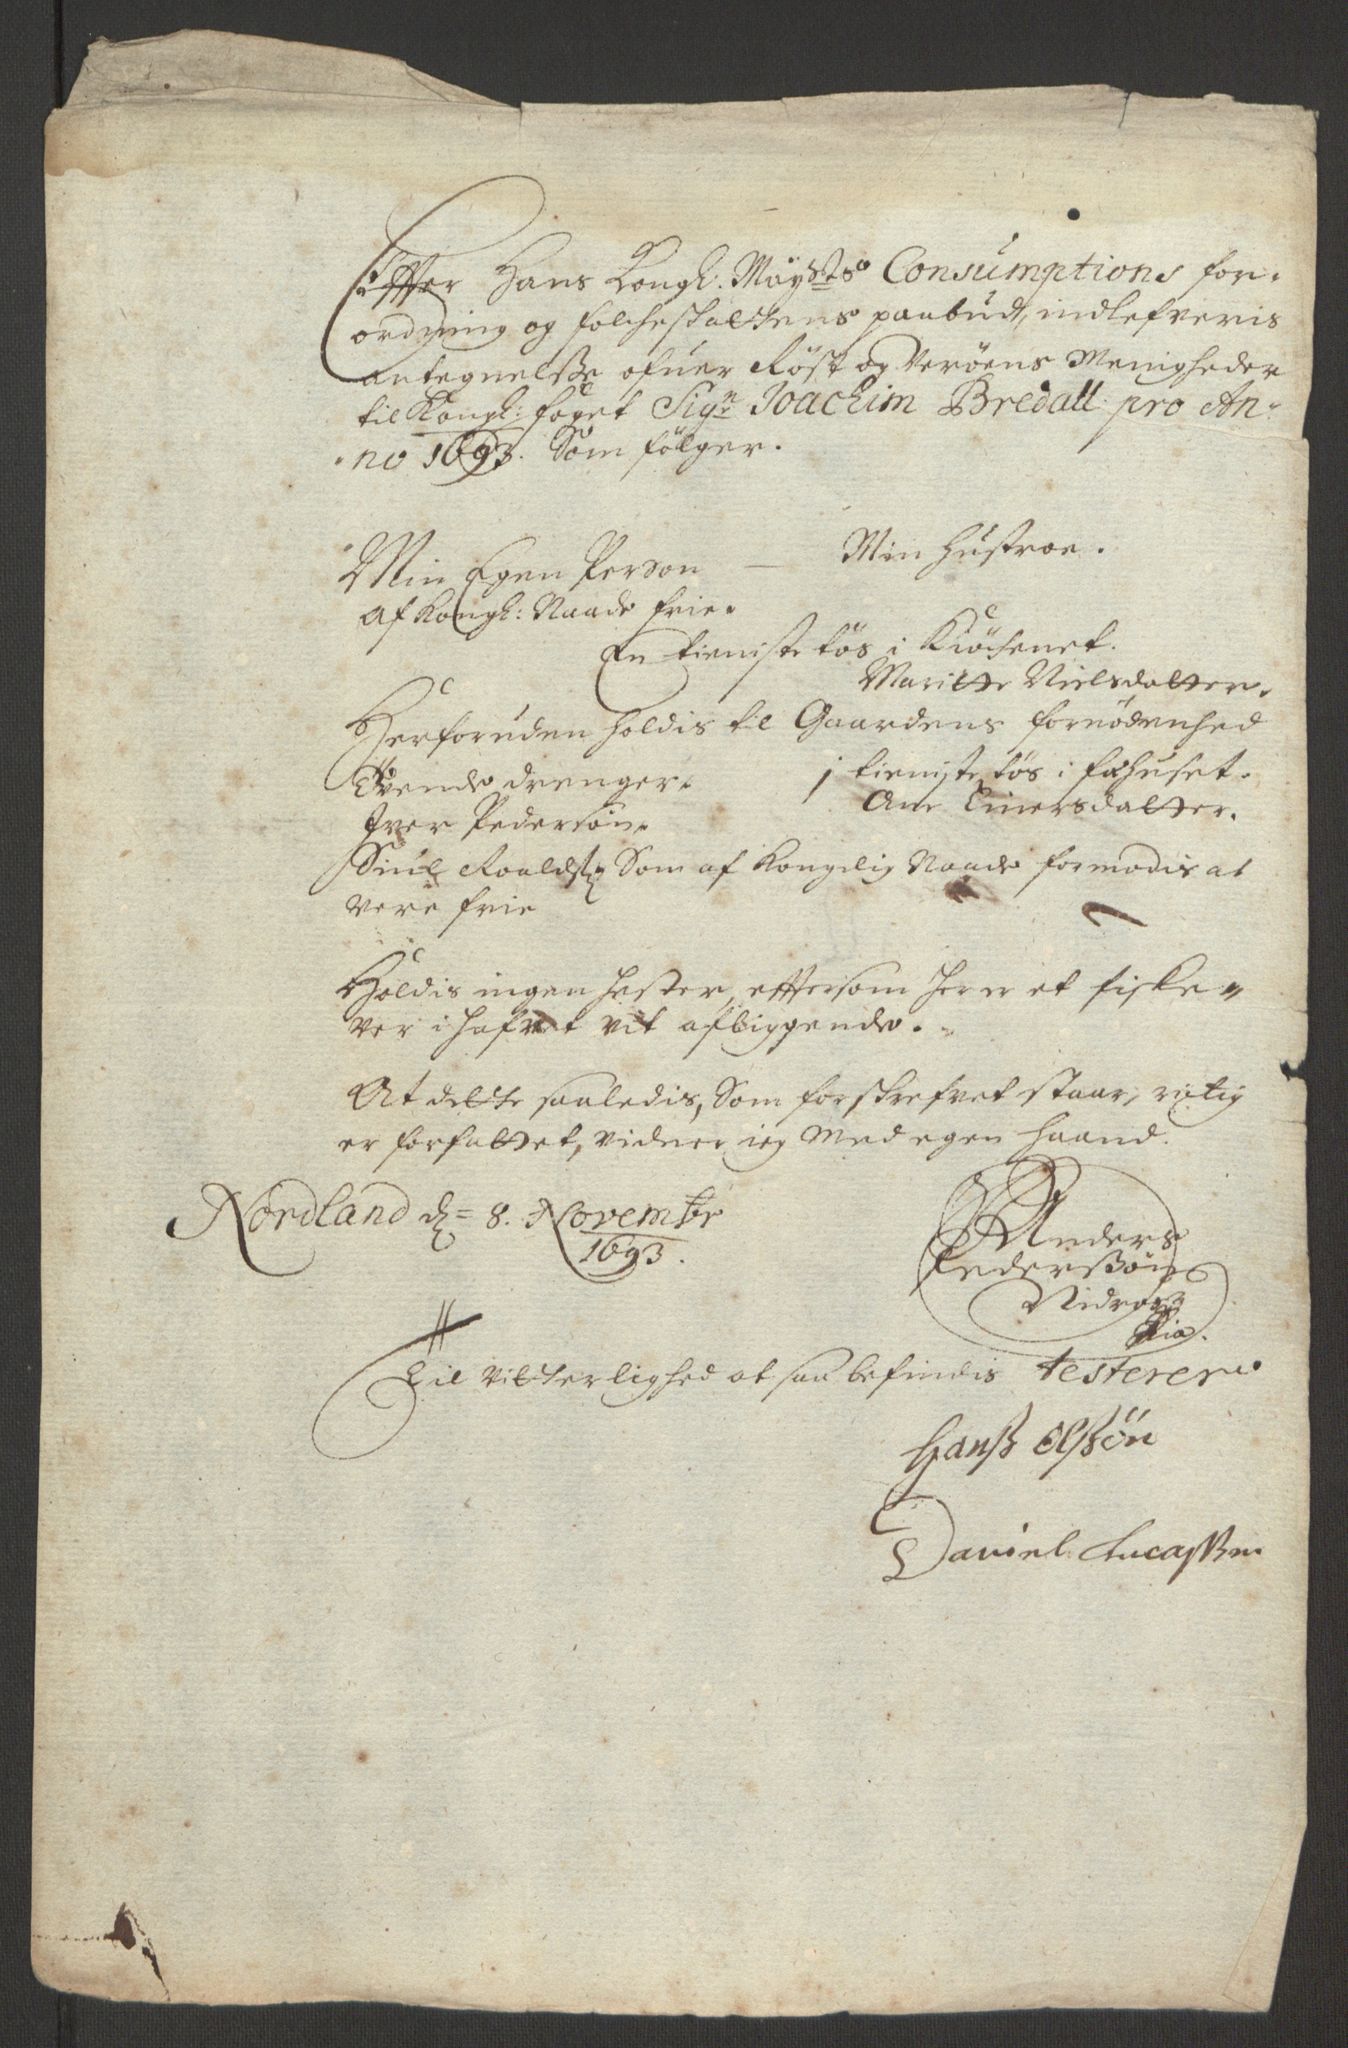 Effter Hans Kongl: Mayhts Consumptions for-
ordning og folcheskattens paabud, indlefveris
antegnelsse ofuer Røst og Verøens Menigheder
til Kongl: foget Sigr Joachim Bredall pro An-
no 1693. Som følger.
Min Egen Person — Min Hustroe.
Af Kongl: Naade frie.
En tieniste tøs i Kiøchenet.
Maritte Nielsdatter.
Herforuden holdis til Gaardens fornødenhed
Tvende drenger. 1 tieniste tøs i føhuset.
Iver Pedersøn. Ane Einersdatter.
Siul Roalds: Som af Kongelig Naade formodis at
vere frie
Holdis ingen hester, efftersom her er et fiske-
ver i hafvet vit afliggende.
At dette saaledis, Som forskrefvet staar, rictig
er forfattet, vidner ieg Med egen haand.
Nordland d= 8. Novembr
1693.
Anders
Pederssøn
Nidros
sia.
Til vitterlighed at saa befindis testerer
Hanss Olssøn
Daniel Lucassen